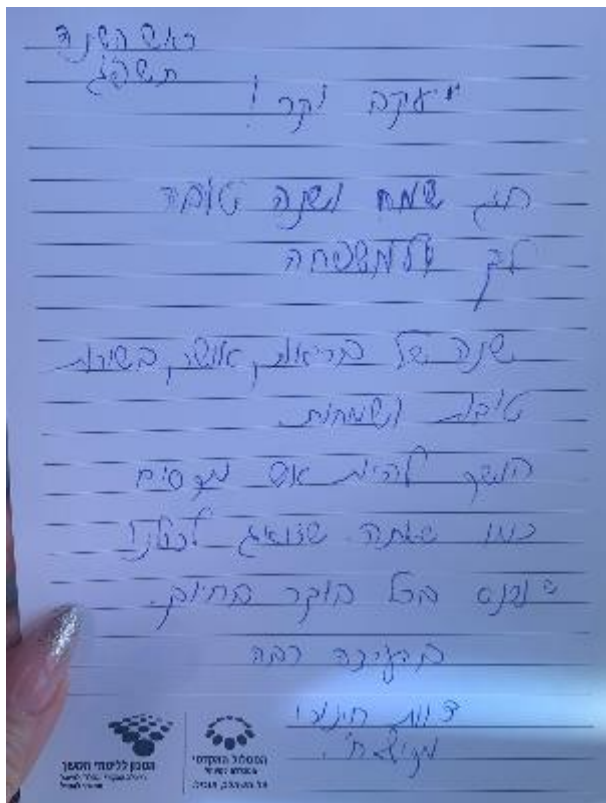 ראש השנה
תשפ"ג
יעקב יקר!
חג שמח ושנה טובה
לך ולמשפחה
שנה של בריאות, אושר, בשורות
טובות ושמחות.
המשך להיות איש מקסים
כמו שאתה שדואג לכולנו
בכל בוקר בחיוך.
בהערכה רבה
צוות חינוכי
המכון ללימודי המשך
המסלול האקדמי